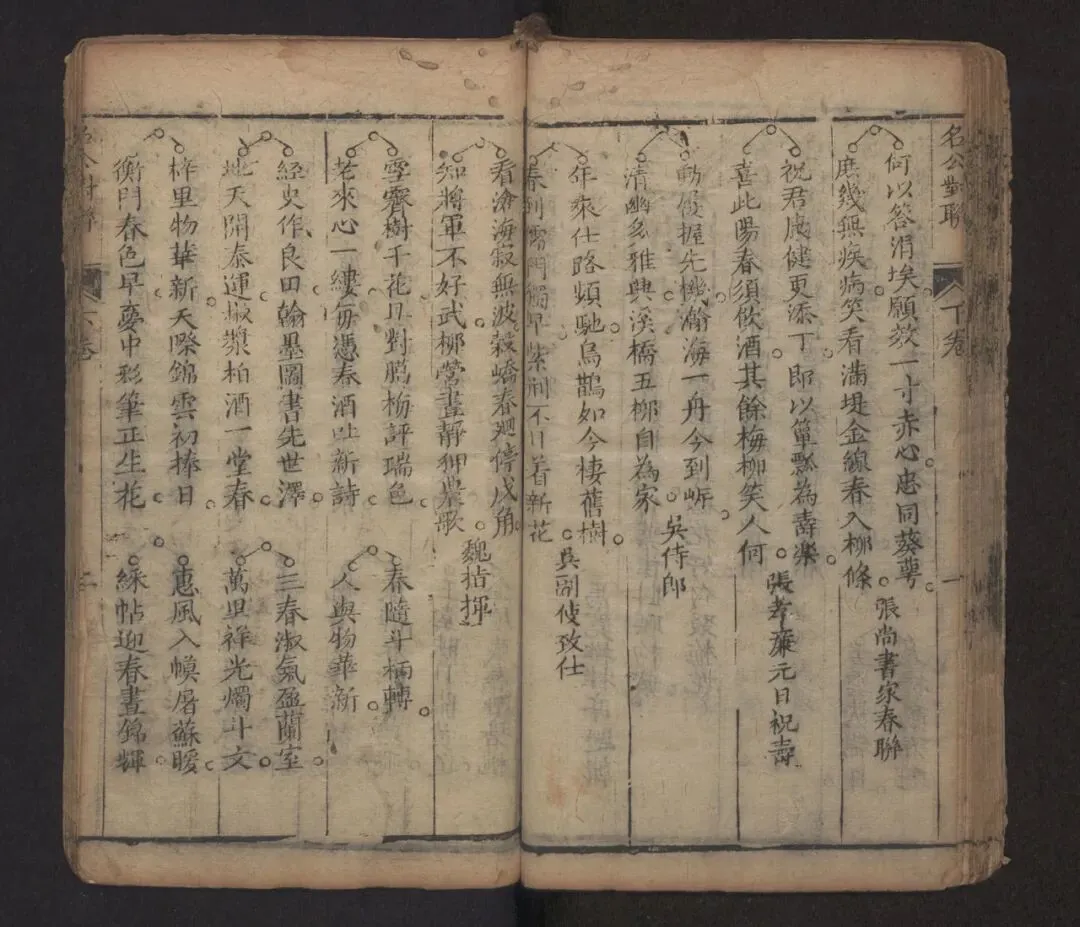 名公對聯
下卷
一
何以答涓埃願效一寸赤心忠同葵萼
庶幾無疾病笑看滿堤金線春入柳條
張尚書家春聯
祝君康健更添丁即以簞瓢為壽樂
喜此陽春須飲酒其餘梅柳笑人何
張孝廉元日祝壽
動伎握先機瀚海一舟今到岍
清幽多雅興溪橋五柳自為家
吳侍郎
年來仕路頻馳烏鵲如今棲舊樹
春到衡門獨早紫荊不日着新花
吳副使致仕
看滄海寂無波穀嶠春廻停戍角
知將軍不好武柳營晝靜狎農歌
魏指揮
雪霽樹千花且對鵬梅評瑞色
老來心一縷每憑春酒壯新詩
春隨斗柄轉
人與物華新
經史作良田翰墨圖書先世澤
地天開泰運椒漿柏酒一堂春
三春淑氣盈蘭室
萬里祥光燭斗文
梓里物華新天際錦雲初捧日
衡門春色早夢中彩筆正生花
惠風入幙屠蘇暖
綵帖迎春晝錦輝
名公對聯
下卷
二